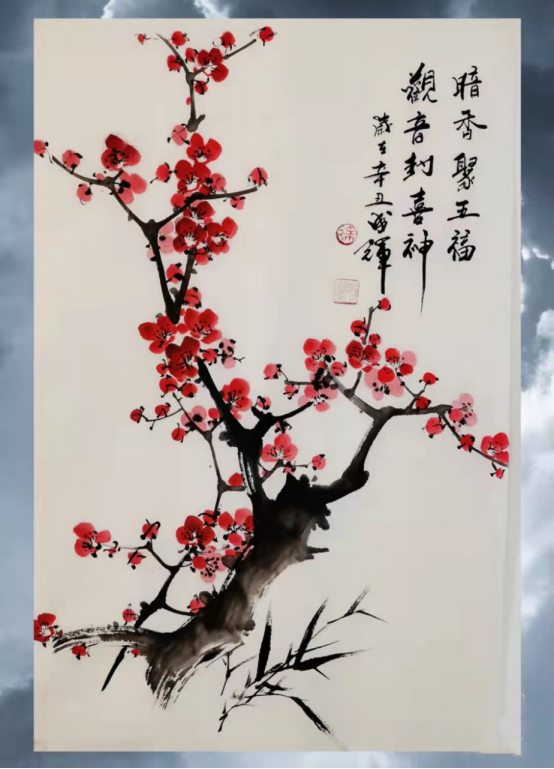 暗香聚五福
觀音封喜神
歲在辛丑輝